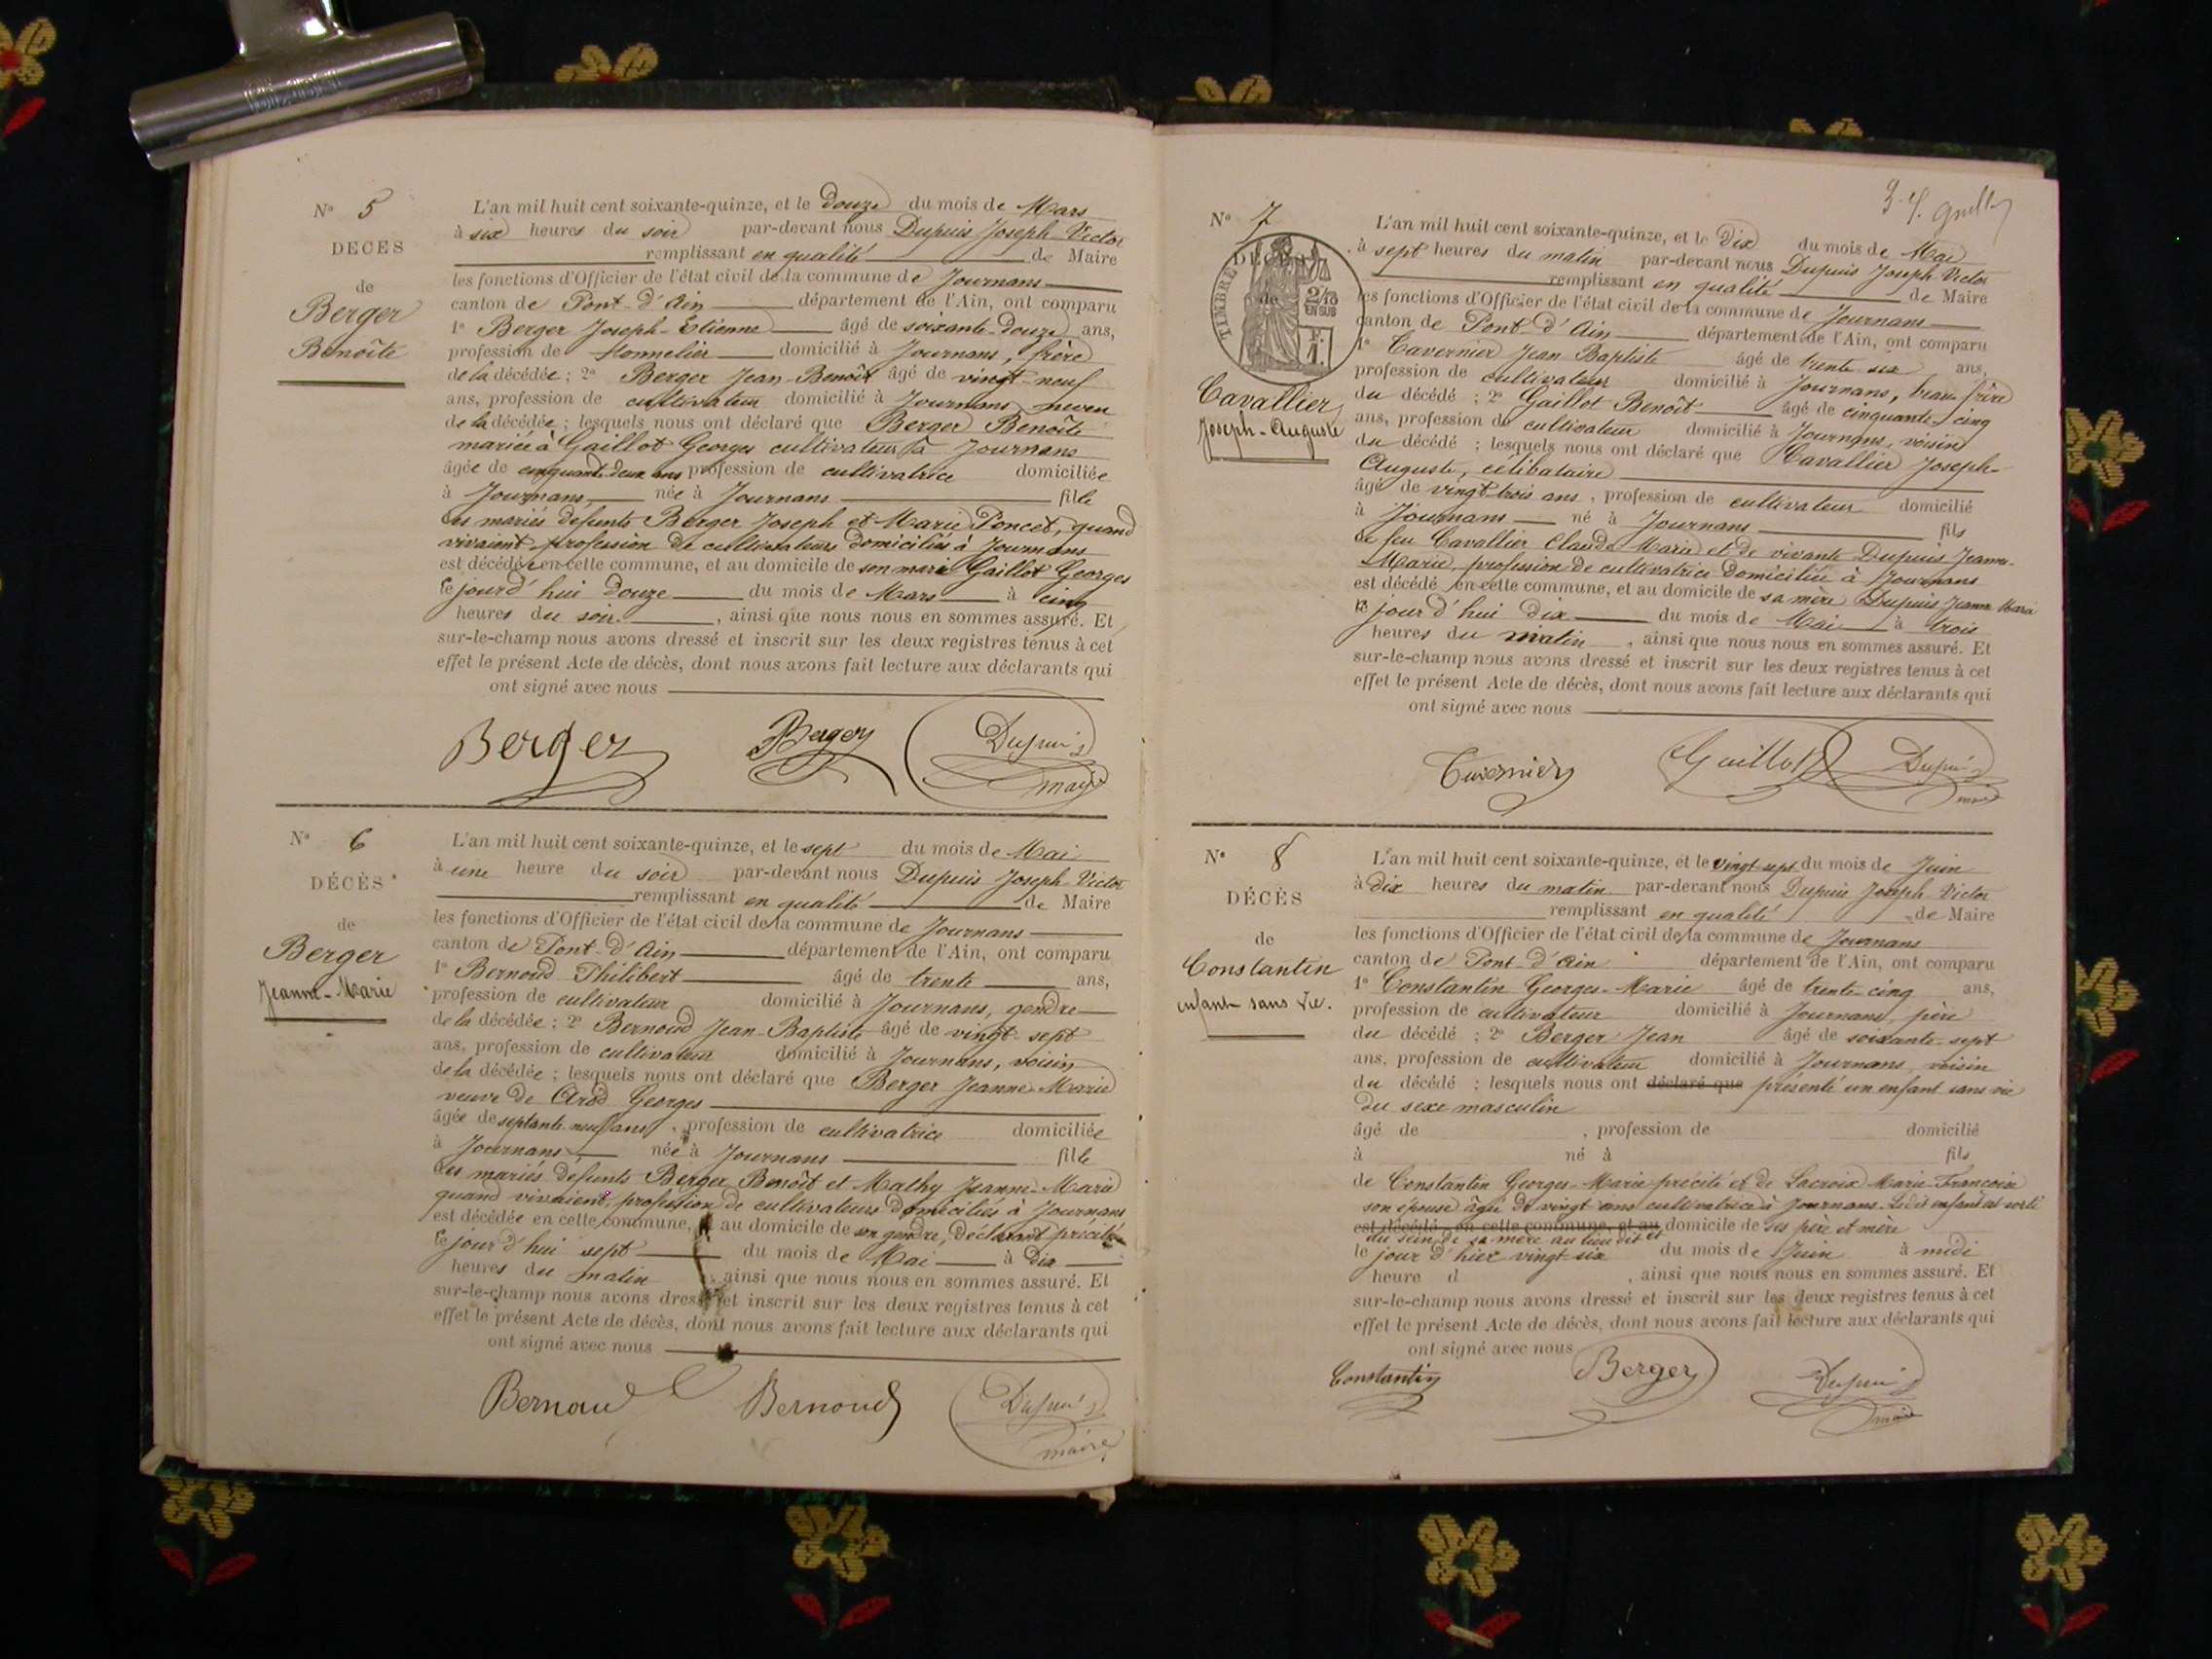 N° 5
DECES
de
Berger
Benoîte
L'an mil huit cent soixante-quinze, et le douze du mois de Mars
à six heures du soir par-devant nous Dupuis Joseph-Victor
remplissant en qualité de Maire
les fonctions d'Officier de l'état civil de la commune de Journans
canton de Pont-d'Ain département de l'Ain, ont comparu
1° Berger Joseph-Etienne âgé de soixante-douze ans,
profession de tonnelier domicilié à Journans, frère
de la décédée ; 2° Berger Jean-Benoît âgé de vingt-neuf
ans, profession de cultivateur domicilié à Journans neveu
de la décédée ; lesquels nous ont déclaré que Berger Benoîte
mariée à Gaillot Georges cultivateur à Journans
âgée de cinquante-deux ans profession de cultivatrice domiciliée
à Journans née à Journans fille
des mariés défunts Berger Joseph et Marie Poncet, quand
vivaient profession de cultivateurs domiciliés à Journans
est décédée en cette commune, et au domicile de son mari Gaillot Georges
le jourd'hui douze du mois de Mars à cinq
heures du soir, ainsi que nous nous en sommes assuré. Et
sur-le-champ nous avons dressé et inscrit sur les deux registres tenus à cet
effet le présent Acte de décès, dont nous avons fait lecture aux déclarants qui
ont signé avec nous
Berger Berger Dupuis
maire
N° 6
DÉCÈS
de
Berger
Jeanne-Marie
L'an mil huit cent soixante-quinze, et le sept du mois de Mai
à une heure du soir par-devant nous Dupuis Joseph-Victor
remplissant en qualité de Maire
les fonctions d'Officier de l'état civil de la commune de Journans
canton de Pont-d'Ain département de l'Ain, ont comparu
1° Bernoud Philibert âgé de trente ans,
profession de cultivateur domicilié à Journans, gendre
de la décédée ; 2° Bernoud Jean-Baptiste âgé de vingt-sept
ans, profession de cultivateur domicilié à Journans, voisin
de la décédée ; lesquels nous ont déclaré que Berger Jeanne-Marie
veuve de Arod Georges
âgée de septante-neuf ans, profession de cultivatrice domiciliée
à Journans née à Journans fille
des mariés défunts Berger Benoît et Mathy Jeanne-Marie
quand vivaient, profession de cultivateurs domiciliés à Journans
est décédée en cette commune, et au domicile de son gendre, déclarant précité
le jour d'hui sept du mois de Mai à dix
heures du matin, ainsi que nous nous en sommes assuré. Et
sur-le-champ nous avons dressé et inscrit sur les deux registres tenus à cet
effet le présent Acte de décès, dont nous avons fait lecture aux déclarants qui
ont signé avec nous
Bernoud Bernoud Dupuis
maire
N° 7
DÉCÈS
de
TIMBRE
2/10
EN SUS
F.
1.
Cavallier
Joseph-Auguste
L'an mil huit cent soixante-quinze, et le dix du mois de Mai
à sept heures du matin par-devant nous Dupuis Joseph-Victor
remplissant en qualité de Maire
les fonctions d'Officier de l'état civil de la commune de Journans
canton de Pont-d'Ain département de l'Ain, ont comparu
1° Tavernier Jean Baptiste âgé de trente-six ans,
profession de cultivateur domicilié à Journans, beau-frère
du décédé ; 2° Gaillot Benoît âgé de cinquante-cinq
ans, profession de cultivateur domicilié à Journans, voisin
du décédé ; lesquels nous ont déclaré que Cavallier Joseph-
Auguste, célibataire
âgé de vingt-trois ans, profession de cultivateur domicilié
à Journans né à Journans fils
de feu Cavallier Claude Marie et de vivante Dupuis Jeanne-
Marie, profession de cultivatrice domiciliée à Journans
est décédé en cette commune, et au domicile de sa mère Dupuis Jeanne Marie
le jour d'hui dix du mois de Mai à trois
heures du matin, ainsi que nous nous en sommes assuré. Et
sur-le-champ nous avons dressé et inscrit sur les deux registres tenus à cet
effet le présent Acte de décès, dont nous avons fait lecture aux déclarants qui
ont signé avec nous
Tavernier Guillot Dupuis
maire
N° 8
DÉCÈS
de
Constantin
enfant sans vie.
L'an mil huit cent soixante-quinze, et le vingt-sept du mois de Juin
à dix heures du matin par-devant nous Dupuis Joseph-Victor
remplissant en qualité de Maire
les fonctions d'Officier de l'état civil de la commune de Journans
canton de Pont-d'Ain département de l'Ain, ont comparu
1° Constantin Georges-Marie âgé de trente-cinq ans,
profession de cultivateur domicilié à Journans père
du décédé ; 2° Berger Jean âgé de soixante-sept
ans, profession de cultivateur domicilié à Journans voisin
du décédé ; lesquels nous ont déclaré que présenté un enfant sans vie
du sexe masculin
âgé de , profession de domicilié
à né à fils
de Constantin Georges-Marie précité et de Lacroix Marie-Françoise
son épouse âgée de vingt ans cultivatrice à Journans. Ledit enfant est sorti
est décédé en cette commune, et au domicile de ses père et mère
du sein de sa mère au lieu dit et
le jour d'hier vingt-six du mois de Juin à midi
heure d , ainsi que nous nous en sommes assuré. Et
sur-le-champ nous avons dressé et inscrit sur les deux registres tenus à cet
effet le présent Acte de décès, dont nous avons fait lecture aux déclarants qui
ont signé avec nous
Constantin Berger Dupuis
maire